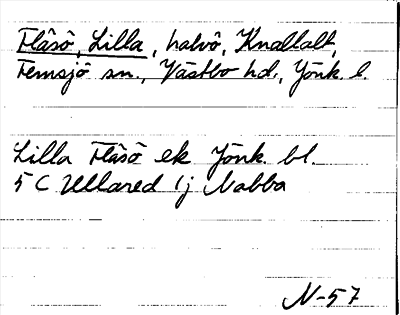 Flåsö, Lilla, halvö, Knallalt,
Femsjö sn., Västbo hd., Jönk. l.
Lilla Flåsö ek Jönk. bl.
5 C Ullared 1j Nabba
N-57